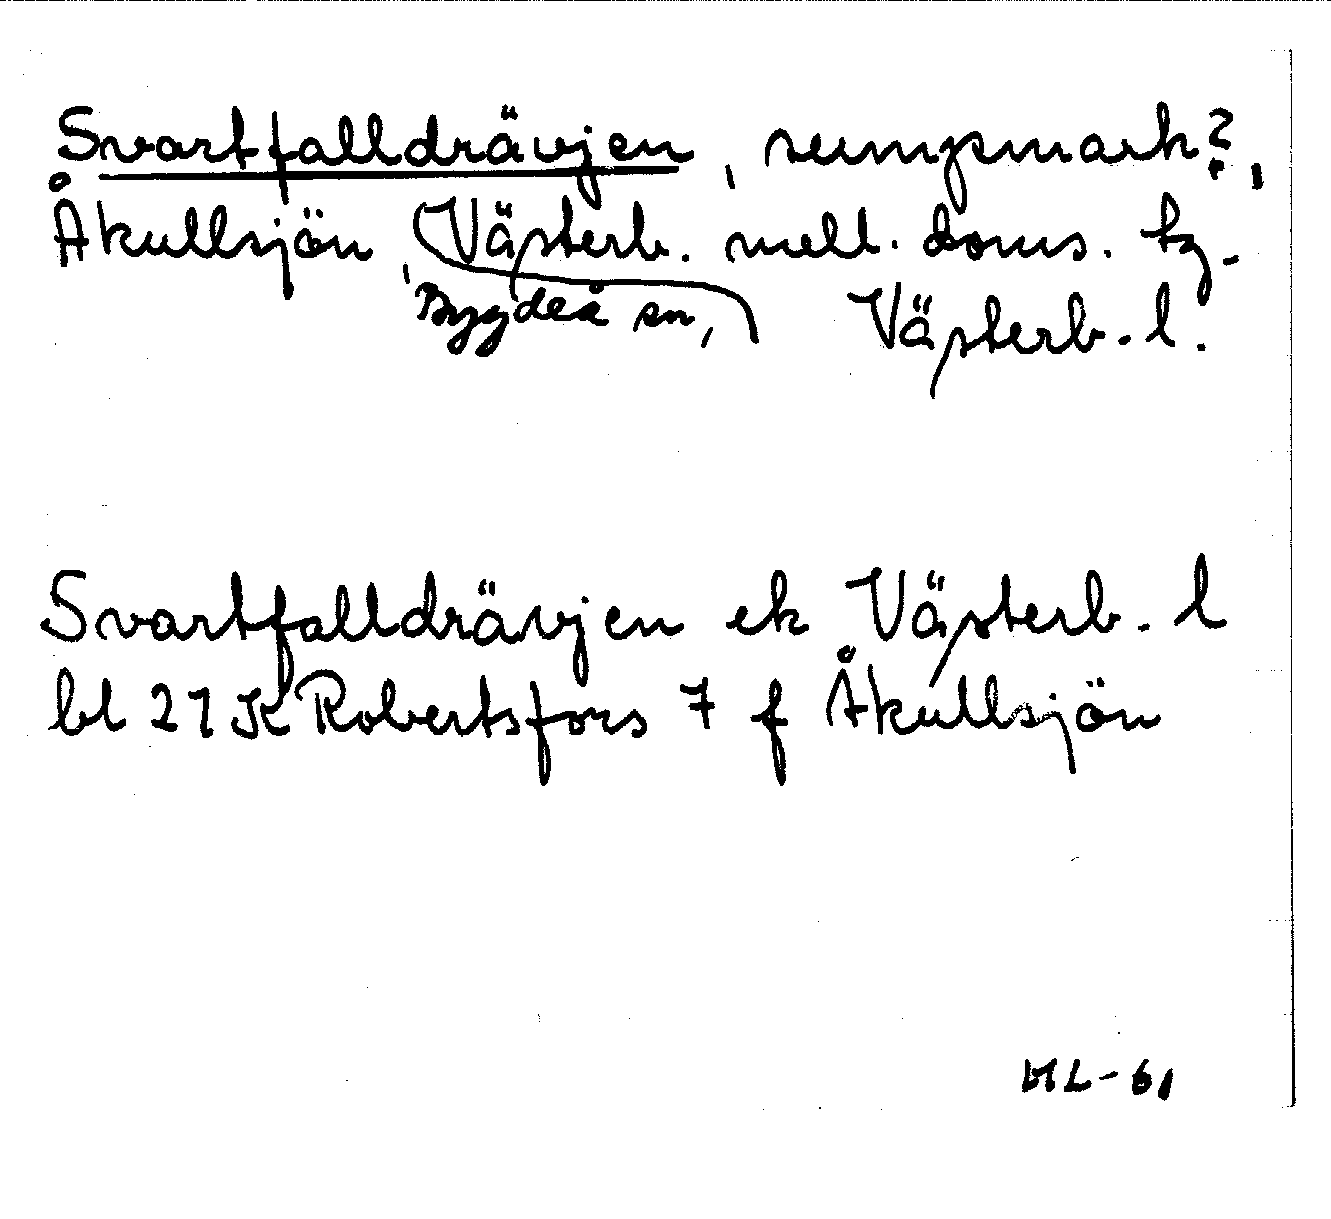 Svartfalldrävjen, sumpmark?,
Åkullsjön, Västerb. mell. doms. tg.
Bygdeå sn, Västerb. l.
Svartfalldrävjen ek Västerb. l
bl 21K Robertsfors 7 f Åkullsjön
ML-61